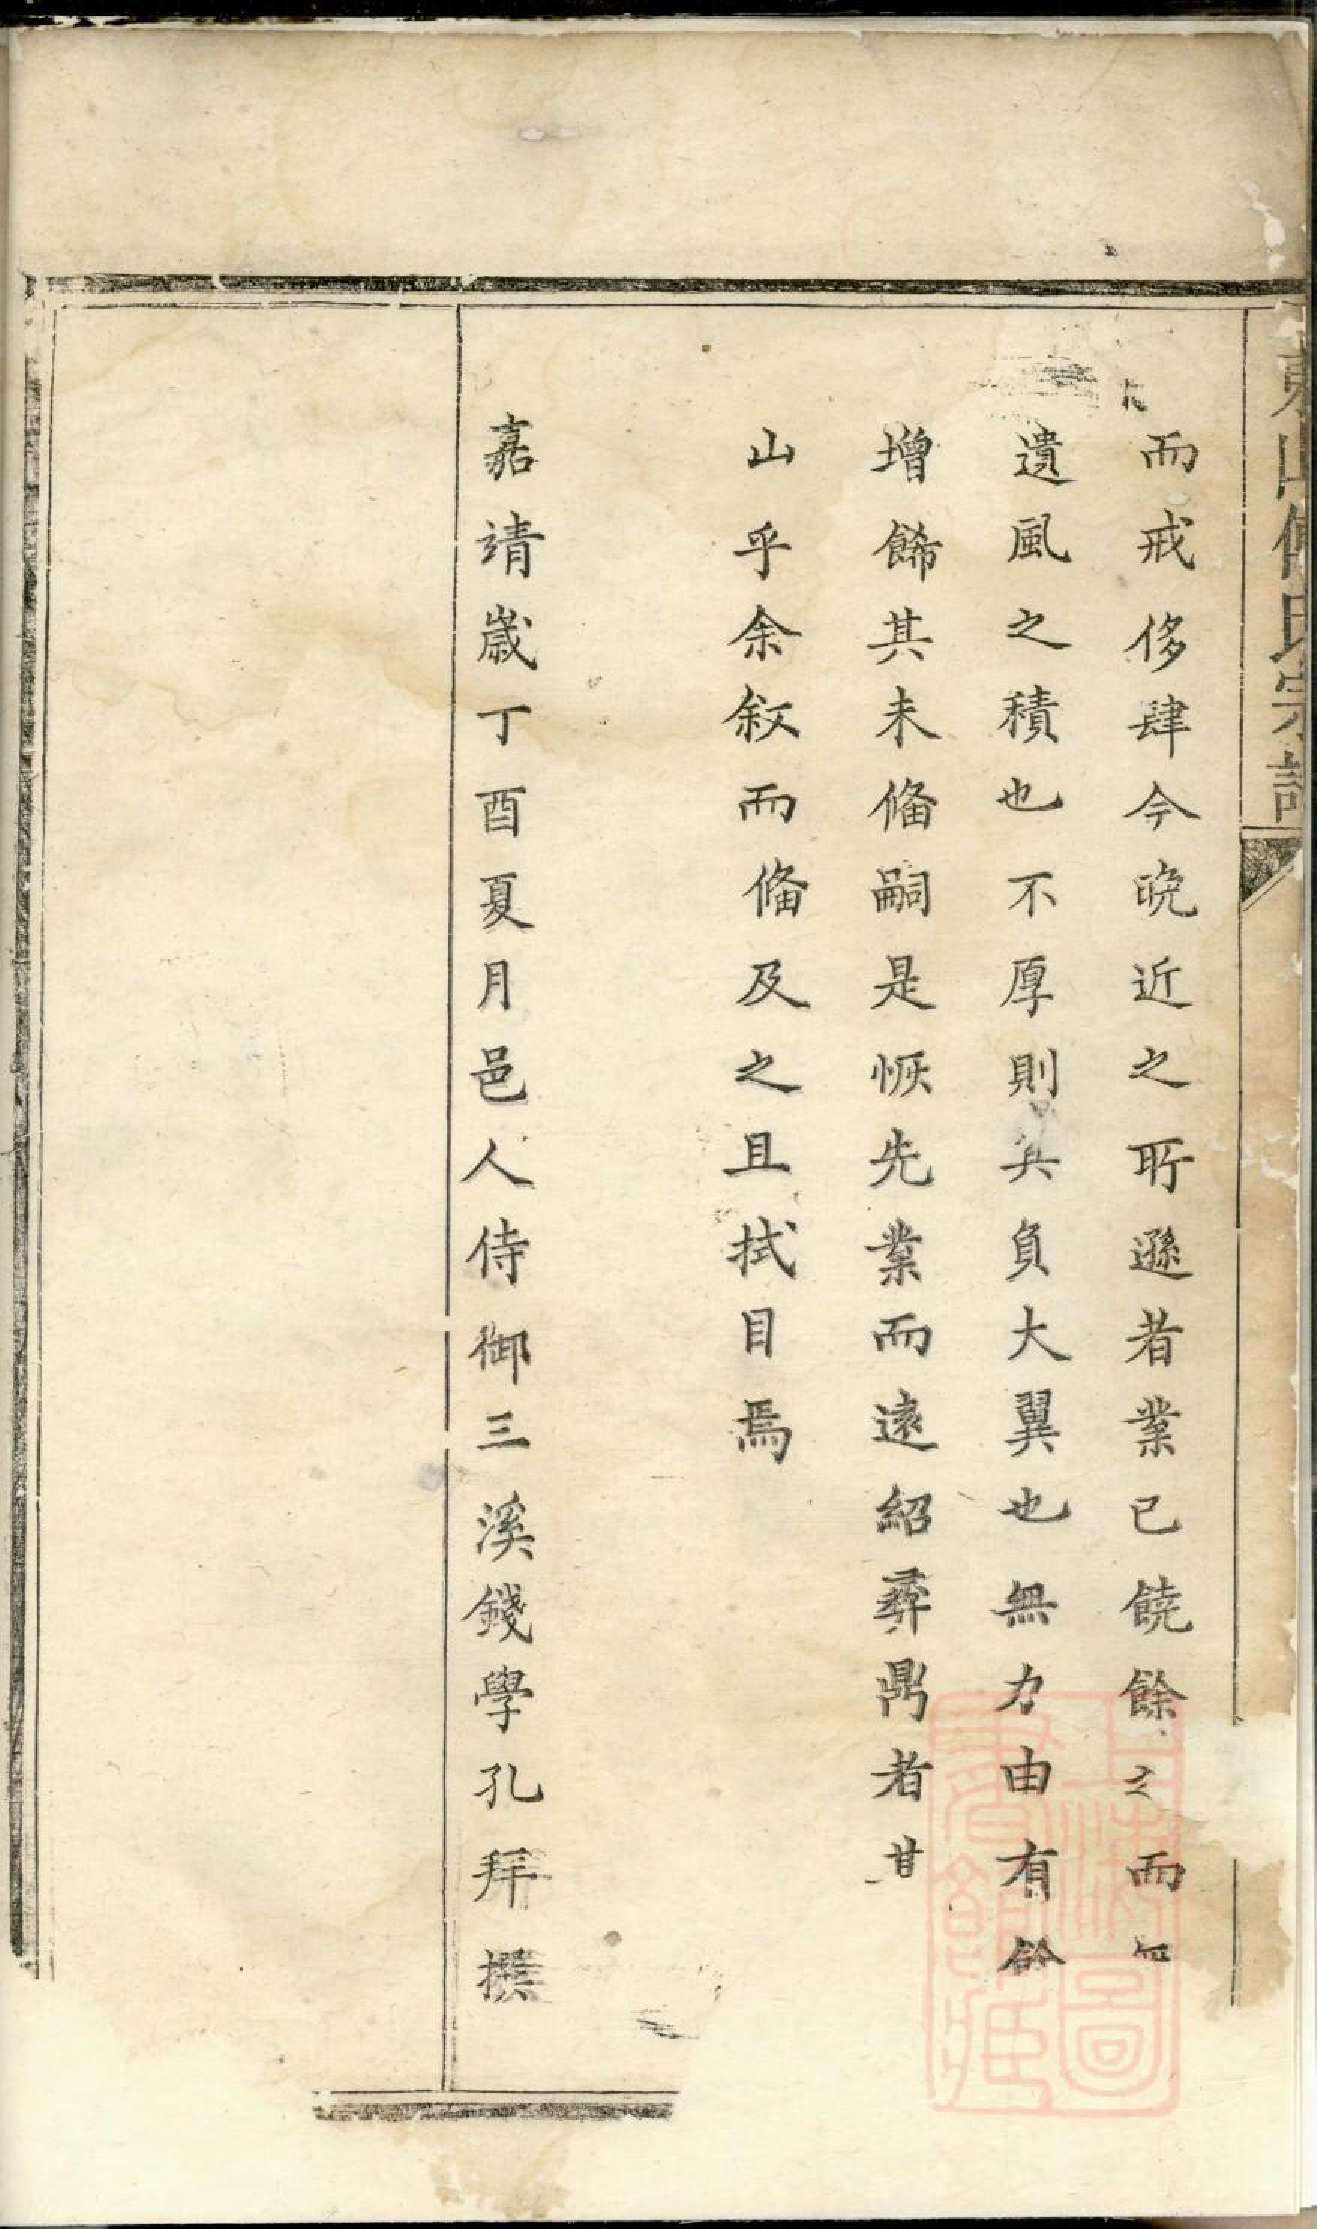 東山傅氏宗譜
而戒侈肆今晚近之所遜者業已饒餘之而
遺風之積也不厚則其負大翼也無力由有餘
增餙其未俻嗣是恢先業而遠紹彛鼎者甘
山乎余敘而俻及之且拭目焉
嘉靖歲丁酉夏月邑人侍御三溪錢學孔拜撰
上海圖
書館藏